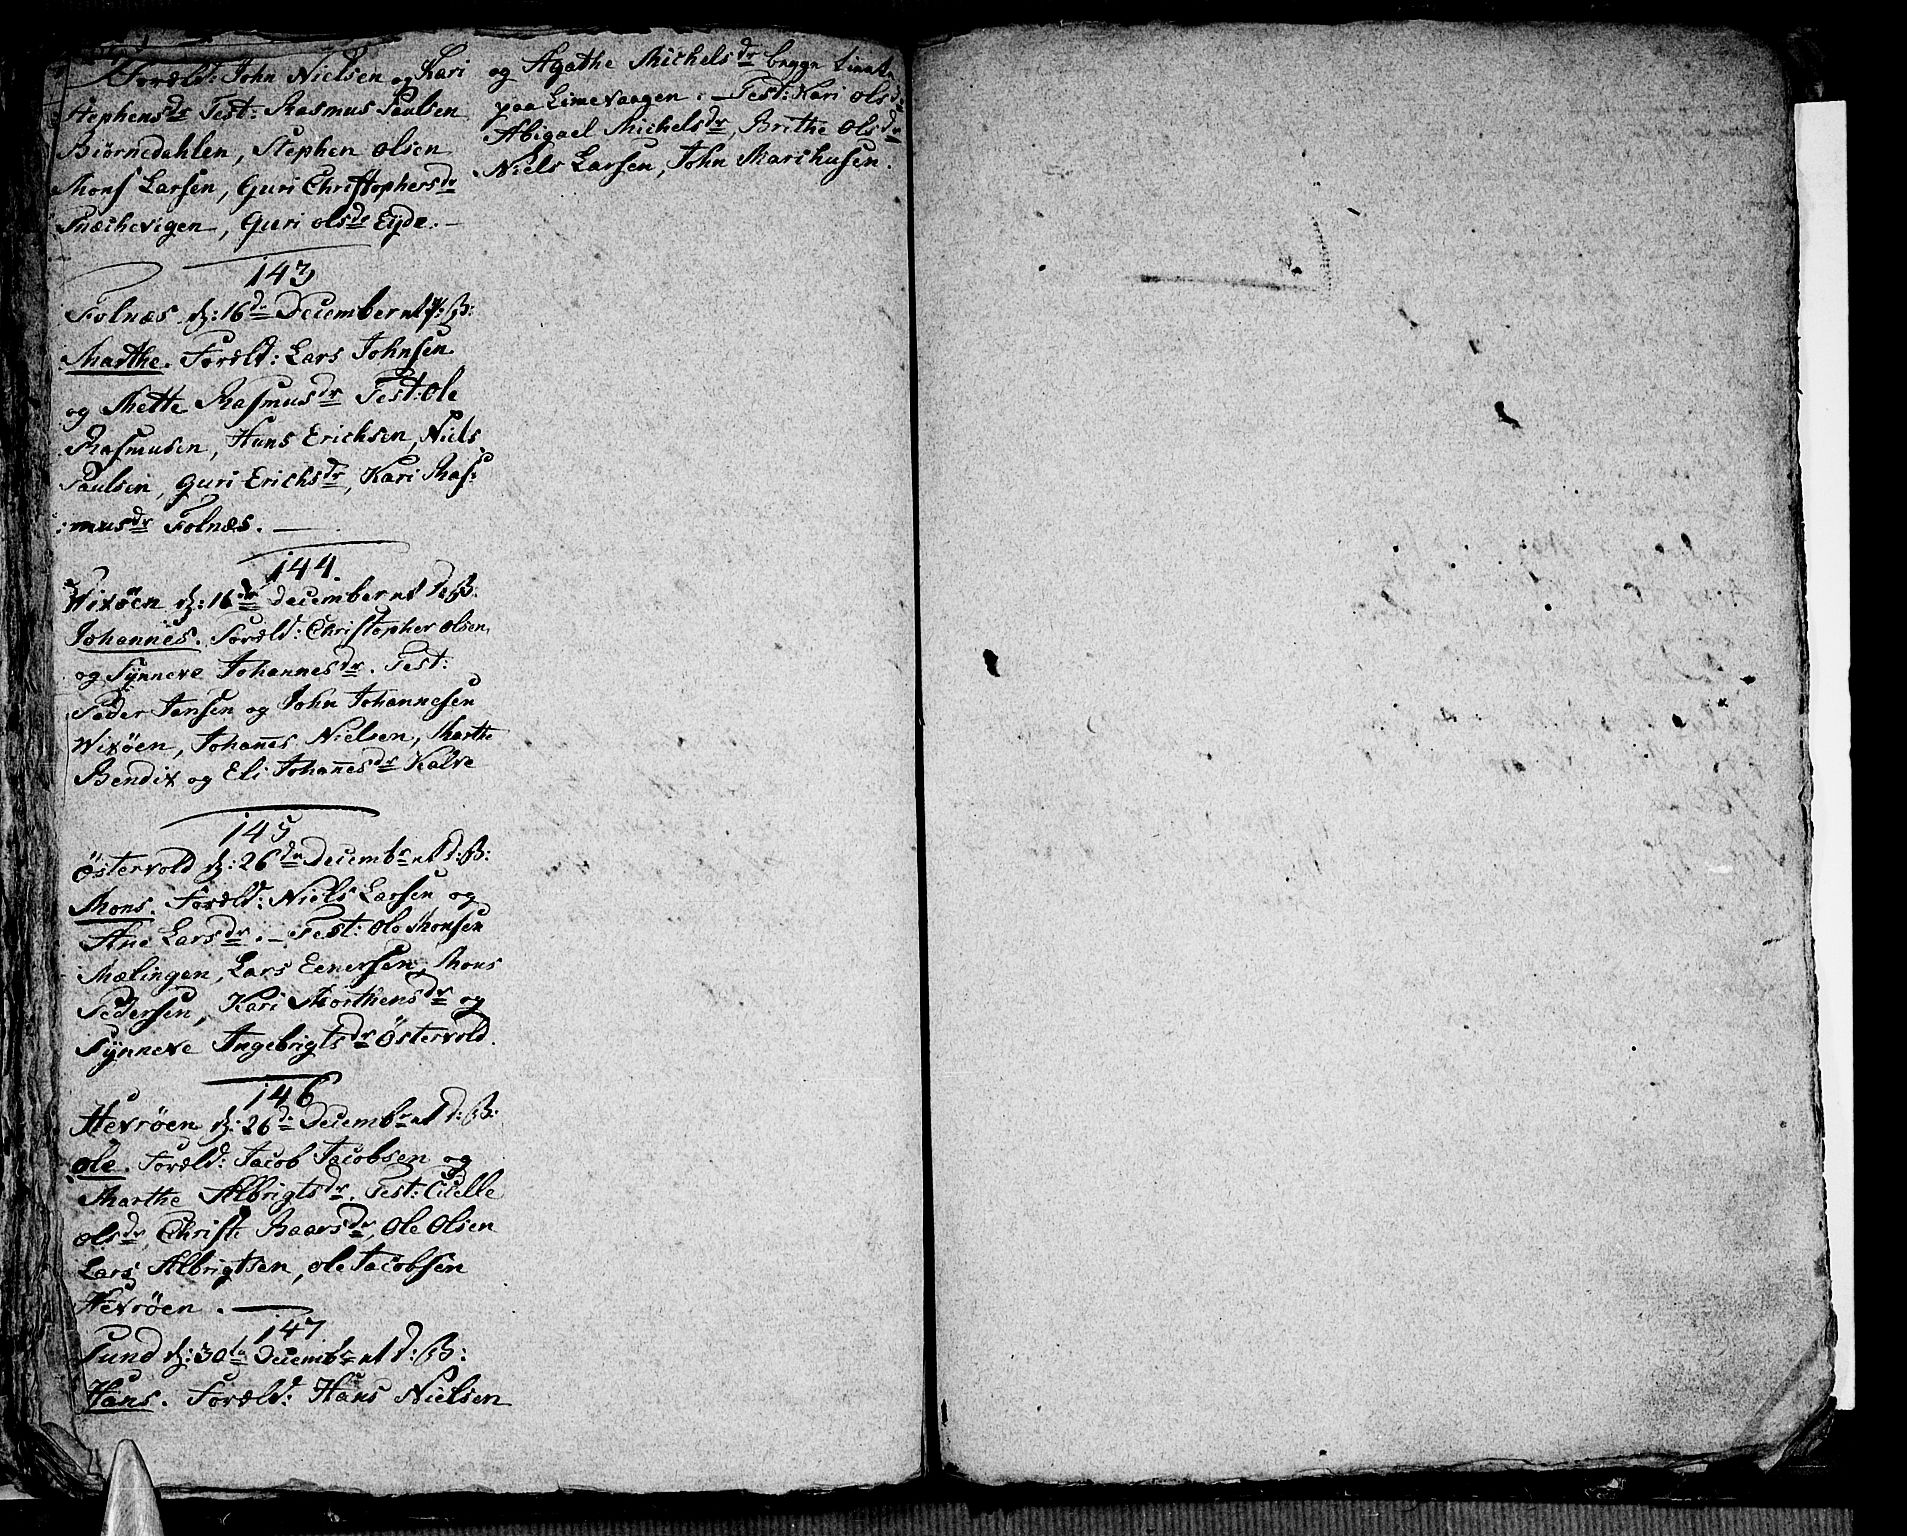 Foræld: John Nielsen og Kari
Stephensdr Test: Rasmus Paulsen
Biørnedahlen, Stephen Olsen
Mons Larsen, Guri Christophersdr
Snæchevigen, Guri Olsdr Eyde. —
143
Folnæs d: 16de December d:B:
Marthe. Foræld: Lars Johnsen
og Mette Rasmusdr Test: Ole
Rasmusen, Hans Erichsen, Niels
Paulsen, Guri Erichsdr, Kari Ras-
musdr Folnæs. —
144.
Wixøen d: 16de December d:B:
Johannes. Foræld: Christopher Olsen
og Synneve Johannesdr. Test:
Peder Jansen og John Johannesen
Wixøen, Johanes Nielsen, Marthe
Bendix og Eli Johanesdr Kalve
145
Østervold d: 26de Decembr d:B:
Mons. Foræld: Niels Larsen og
Ane Larsdr. — Test: Ole Monsen
Mælingen, Lars Eenersen, Mons
Pedersen, Kari Morthensdr og
Synneve Ingebrigtsdr Østervold.
146
Hevrøen d: 26de Decembr d:B:
Ole. Foræld: Jacob Jacobsen og
Marthe Albrigtsdr. Test: Cicelle
Olsdr, Christi Baarsdr, Ole Olsen
Lars Albrigtsen, Ole Jacobsen
Hevrøen. —
147
Sund d: 30te Decembr d:B:
Hans. Foræld: Hans Nielsen
og Agathe Michelsdr
paa Limevaagen. — Test: Kari Olsdr
Abigael Michelsdr, Brithe Olsdr
Niels Larsen, John Marihusen.